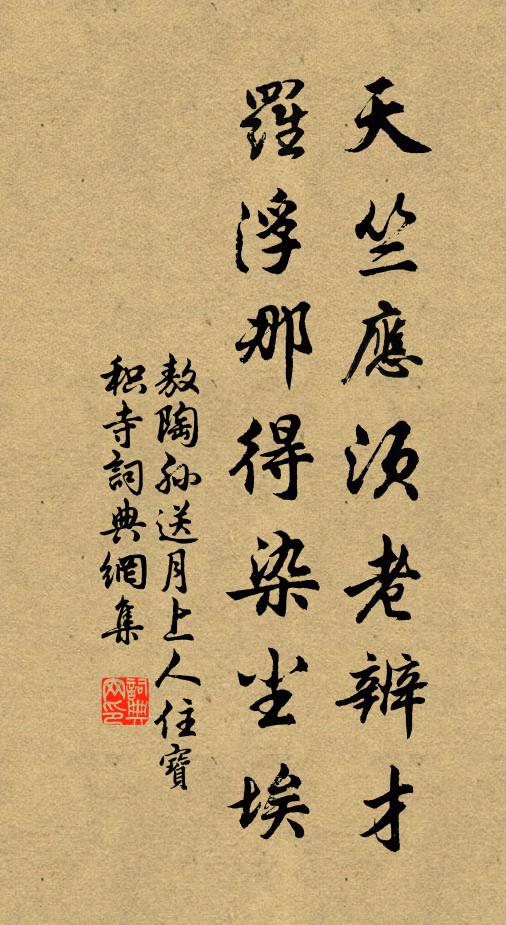 天竺應須老辨才
羅浮那得染尘埃
敖陶孙送月上人住寶
积寺詞典網集
詞典
网印